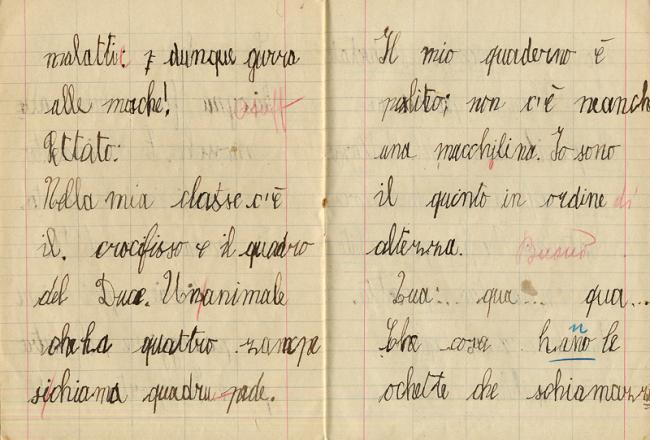 malattie: e dunque guerra
alle mosche!
Dettato:
Nella mia classe c'è
il crocifisso e il quadro
del Duce. Un animale
che ha quattro zampe
si chiama quadru pede.
Il mio quaderno è
pulito; non c'è neanch
una macchiolina. Io sono
il quinto in ordine di
altezza.
Buono
Qua... qua... qua...
Che cosa hanno le
ochette che schiamazz